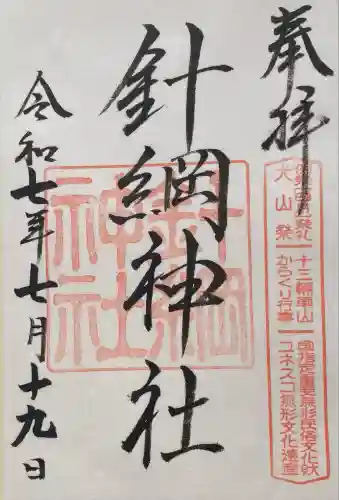 奉拝
犬山祭
十三輌車山
からくり行事
国指定重要無形民俗文化財
ユネスコ無形文化遺産
針綱神社
針綱
神社
令和七年七月十九日